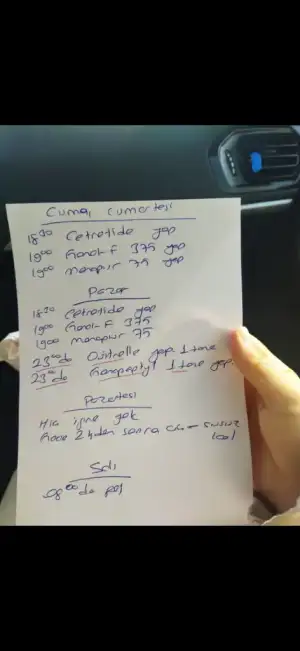 Cuma, Cumartesi
18³⁰ Cetrotide yap
19⁰⁰ Gonal-F 375 yap
19⁰⁰ menopur 75 yap
Pazar
18³⁰ Cetrotide yap
19⁰⁰ Gonal-F 375
19⁰⁰ menopur 75
23⁰⁰ de Ovitrelle yap 1 tane
23⁰⁰ de Gonapeptyl 1 tane yap
Pazartesi
Hiç iğne yok
Gece 24 den sonra aç - susuz
kal
Salı
08⁰⁰ da gel